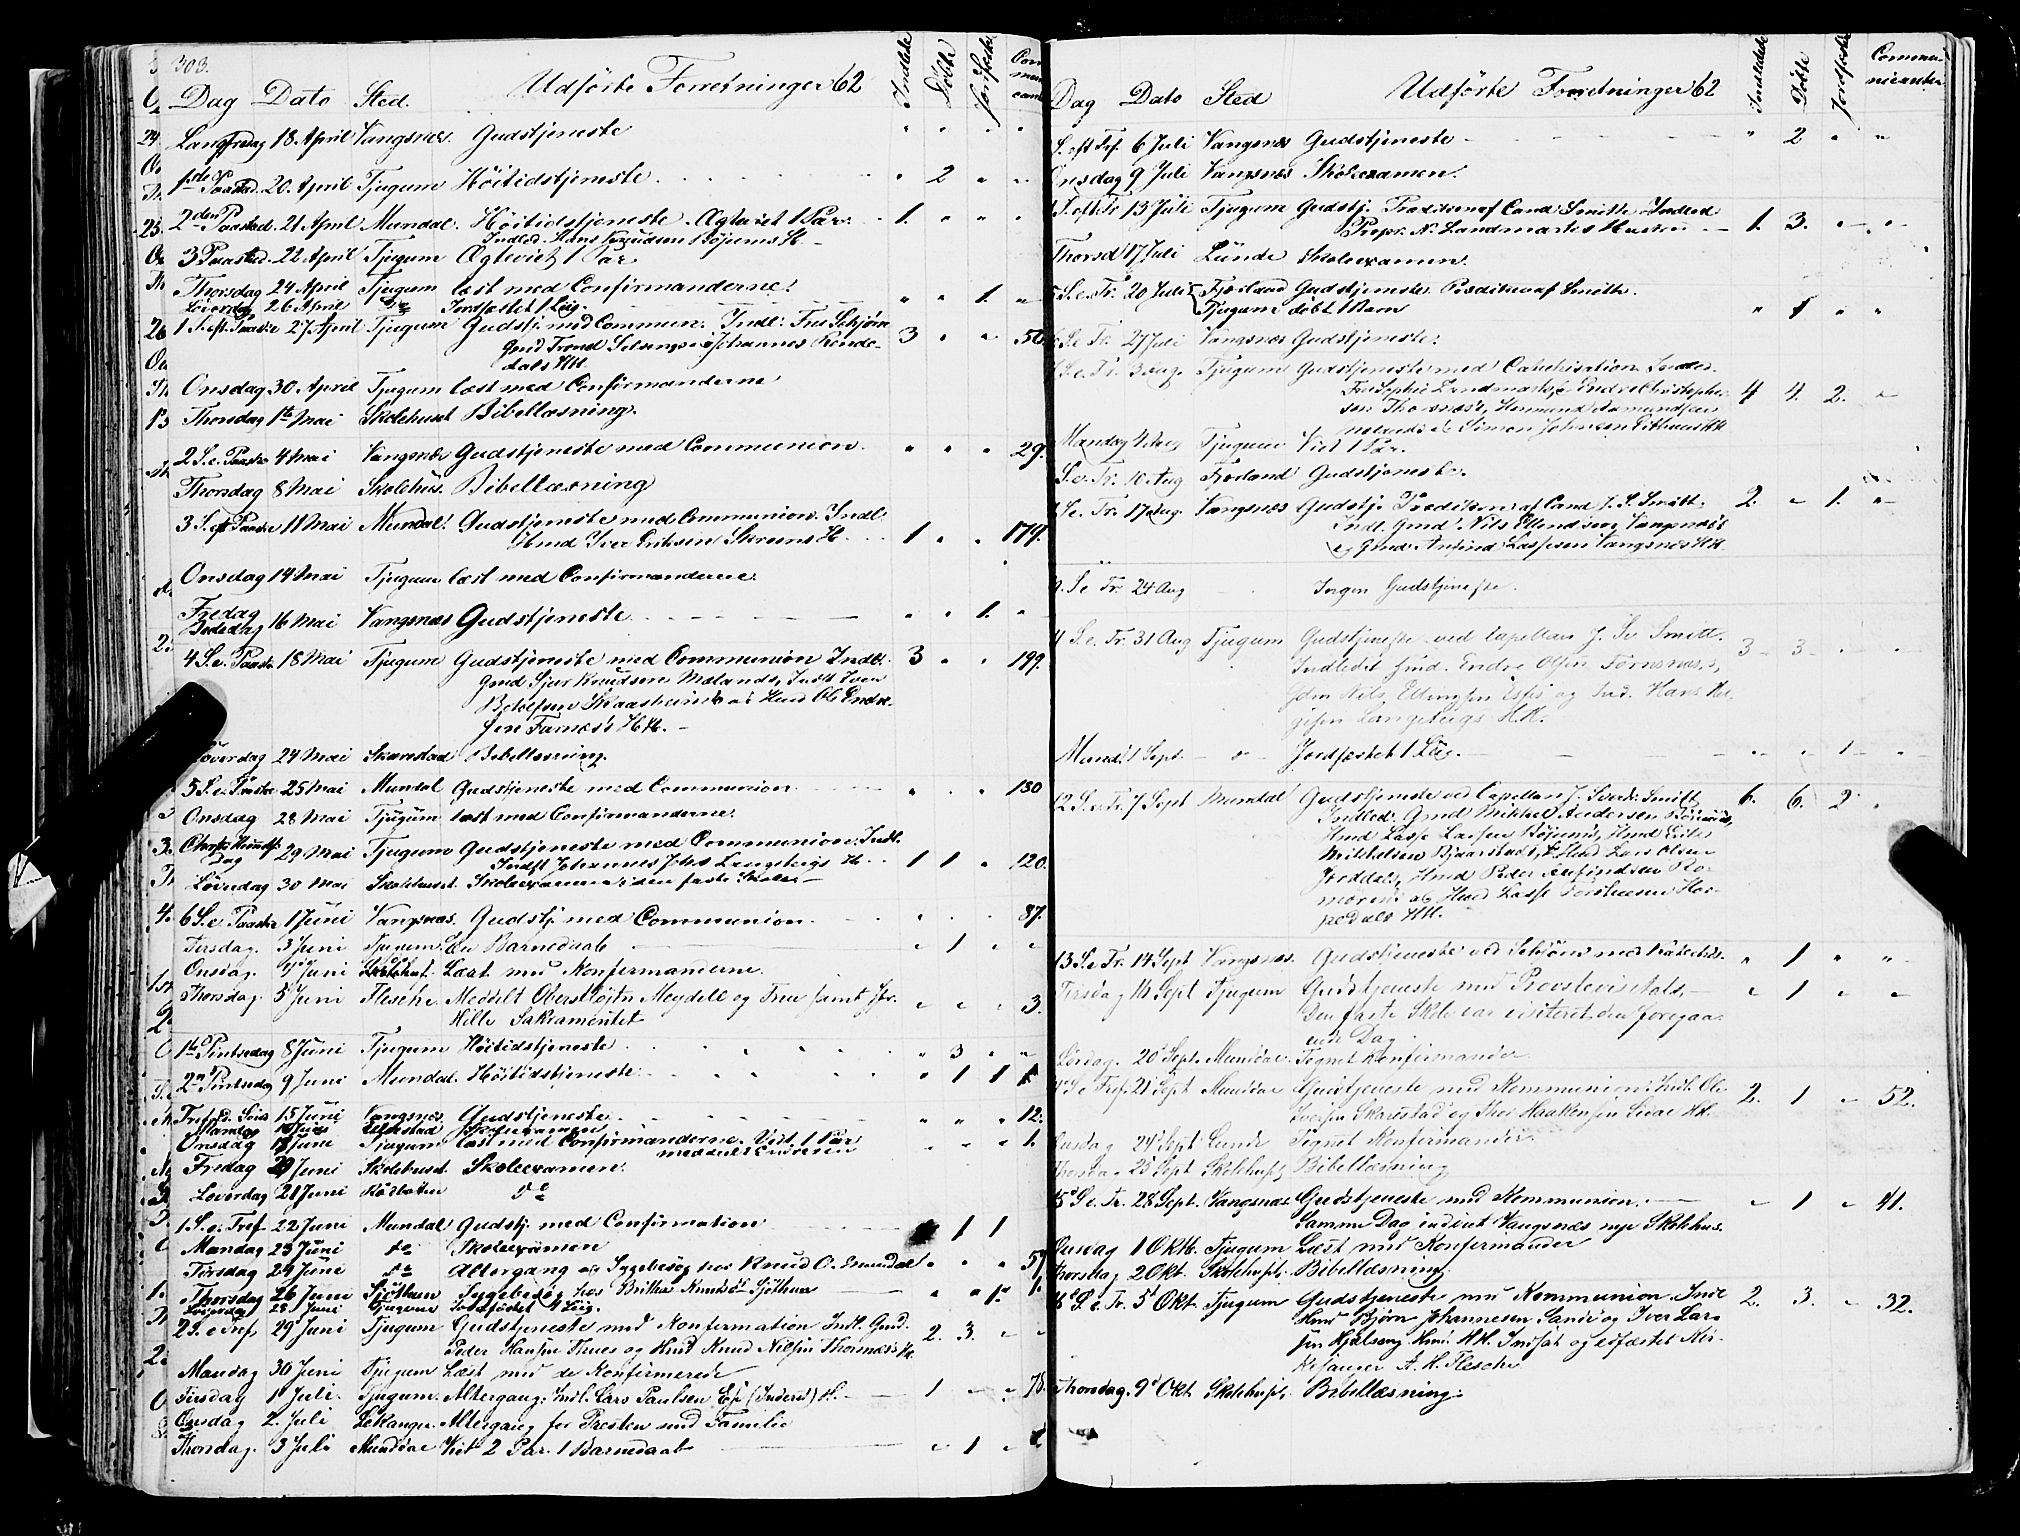 303.
Dag Dato Sted. Udførte Forretninger 62 Indledte Døbte Jordfæstede Communicant
Langfredag 18. April Vangsnæs. Gudstjeneste
1ste Paasked. 20. April Tjugum Høitidstjeneste. 2
2den Paasked. 21 April Mundal. Høitidstjeneste. Ægteviet 1 Par. 1.
Indled. Hans Knudsen Bøjums H.
3 Paasked. 22 April Tjugum Ægteviet 1 Par
Thorsdag 24 April Tjugum læst med Confirmanderne.
Løverdag 26 April do Jordfæstet 1 Lig. 1.
1 S. eft. Paaske 27 April Tjugum Gudstj. med Commun. Indl: Fru Schjørn 3 50
Gmd Trond Johannes Rende-
dals HH.
Onsdag 30 April Tjugum læst med Confirmanderne
Thorsdag 1ste Mai Skolehuset Bibellæsning.
2 S. e. Paaske 4 Mai Vangsnæs Gudstjeneste med Communion. 29.
Thorsdag 8 Mai Skolehus. Bibellæsning
3 S. eft Paaske 11 Mai Mundal. Gudstjeneste med Communion. Indl.
Hmd Iver Eriksen Skreens H. 1 179.
Onsdag 14 Mai Tjugum læst med Confirmanderne.
Fredag
Bededag 16 Mai Vangsnæs Gudstjeneste 1.
4 S. e. Paaske 18 Mai Tjugum Gudstjeneste med Communion Indl. 3 199.
Gmd Sjur Knudsen Mælands, Indst Iver
og Hmd Ole Endre-
sen Farnæs's HH.
Løverdag 24 Mai Skarestad Bibellæsning.
5 S. e. Paaske 25 Mai Mundal Gudstjeneste med Communion 130
Onsdag 28 Mai Tjugum læst med Confirmanderne.
Christi Himmelf.
Dag 29 Mai Tjugum Gudstjeneste med Communion. Indl.
Indst Johannes Johs Langeteigs H. 1 1 120.
Løverdag 30 Mai Skolehuset. Skoleexamen i den faste Skole
6 S. e. Paaske 1 Juni Vangsnæs. Gudstj. med Communion. 87.
Tirsdag. 3 Juni Tjugum. En Barnedaab 1
Onsdag. 4 Juni Skolehuset. Læst med Konfirmanderne.
Thorsdag. 5 Juni Flesche. Meddelt Oberstløjtn Meydell og Frue samt Jfr. 3.
Hille Sakramentet
1ste Pintsedag 8 Juni Tjugum Høitidstjeneste 3
2n Pintsedag 9 Juni Mundal. Høitidstjeneste. 1 1
Tref. Sønd 15 Juni Vangsnæs Gudstjeneste 12.
Mandag 16 Juni Skoleexamen
Onsdag 18 Juni Tjugum læst med Confirmanderne. Viet 1 Par 1.
Fredag 20 Juni Skolehuset. Skoleexamen.
Løverdag 21 Juni do
1 S. e. Tref. 22 Juni Mundal Gudstj. med Confirmation 1 1
Mandag 23 Juni do Skoleexamen
Tirsdag 24 Juni do Altergang og Sygebesøg hos Knud O. Mundal 57
Thorsdag 26 Juni Sjøthun Sygebesøg hos Brithe Knudsdr Sjøthun 1.
Løverdag 28 Juni Tjugum Jordfæstet 1 Lig. 1
2 S. e Tref 29 Juni Tjugum Gudstjeneste med Konfirmation Indl. Gmd. 2. 3.
Peder Hansen Thues og Hmd Knud Nilsen Thornæs's H.
Mandag 30 Juni Tjugum Læst med de Konfirmerede
Tirsdag 1 Juli. Tjugum. Altergang: Indl. Lars Paulsen Ese (Inderst) H. 1 78.
Onsdag 2. Juli Lekanger. Altergang for Presten med Familie
Thorsdag. 3 Juli Mundal Viet 2 Par. 1 Barnedaab 1
Dag Dato Sted Udførte Forretninger 62 Indledede Døbte Jordfæstede Communicanter
S. eft Tref. 6 Juli Vangsnæs Gudstjeneste 2
Onsdag 9 Juli Vangsnæs Skoleexamen.
S. eft. Tr 13 Juli Tjugum Gudstj. Prædiken af Cand Smitt. Indled
Propr. N. Landmarks Hustru 1. 3.
Thorsd 17 Juli Lunde Skoleexamen.
5 S. e. Tr. 20 Juli Fjærland Gudstjeneste. Prædiken af Smith.
Tjugum døbt 1 Barn 1
6 S. e Tr. 27 Juli Vangsnæs Gudstjeneste.
7 S. e. Tr. 3 Aug. Tjugum Gudstjeneste med Catechisation. Indled.
Fru Sophie Landmark, Endre Christophe-
sen Thornæs's, Hermund Aamundsen
og Simon Johnsen HH. 4 4. 2.
Mandag 4 Aug Tjugum Viet 1 Par.
S. e. Tr. 10 Aug Fjærland Gudstjeneste.
S. e. Tr. 17 Aug. Vangsnæs Gudstj. Prædiken af Cand J. S. Smitt. 2. 1.
Indl. Gmd Nils Ellendsen Vangsnæs's
og Gmd Anfind Lassesen Vangsnæs HH.
S. e Tr. 24 Aug Ingen Gudstjeneste.
11 S. e. Tr. 31 Aug Tjugum Gudstjeneste ved Capellan J. Sv Smitt. 3 3
Indledet Hmd. Endre Olsen Tornsnæs's,
Gdm Nils Ellingsen Eses og Ind. Hans Hel-
gesen Langeteigs H.H.
Mand. 1 Sept. Jordfæstet 1 Lig. 1
12 S. e. Tr. 7 Sept Mundal Gudstjeneste ved Capellan J. Sverdr. Smitt 6. 6. 2
Indled. Gmd Mikkel Andersen Bøjums,
Hmd Lasse Lassen Bøjums, Hmd Erik
Mikkelsen Bjaarstads, Hmd Lars Olsen
Jorddals, Hmd Peder Anfindsen Ro-
moren og Hmd Lasse Torsteinsen Hor-
pedals HH.
13 S. e Tr. 14 Sept Vangsnæs. Gudstjeneste ved Schjørn med Katechis. 1
Tirsdag 16 Sept Tjugum Gudstjeneste med Provstevisitats, 1
Den faste Skole var visiteret den foregaa-
ende Dag.
Lørdag. 20 Sept. Mundal Tegnet Konfirmander
14 S. e Tref. 21 Sept Mundal Gudstjeneste med Kommunion: Indl. Ole 2. 1 52.
Iversen Skarestad og Thor Haakensen HH.
Onsdag 24 Sept Lunde Tegnet Konfirmander.
Thorsdag 25 Sept Skolehuset Bibellæsning
15 S. e. Tr. 28 Sept. Vangsnæs Gudstjeneste med Kommunion. 1 41.
Samme Dag indviet Vangsnæs nye Skolehus.
Onsdag 1 Okt. Tjugum Læst med Konfirmander
Thorsdag 2 Okt. Skolehuset. Bibellæsning.
16 S. e. Tr. 5 Okt Tjugum Gudstjeneste med Kommunion Indl 2. 3. 32.
Hmd Bjørn Johannesen Sande og Iver Lar-
sen Hmd. HH. Indsat og edfæstet Kir-
kesanger A. H. Flesche
Thorsdag. 9 Okt. Skolehuset. Bibellæsning.